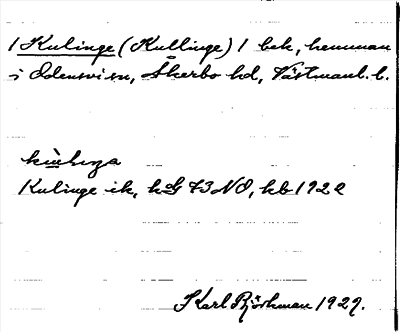 1 Kulinge (Kullinge) 1 bek, hemman
i Odensvi sn, Åkerbo hd, Västmanl. l.
Kulinge ik, 43 NO, kb 1922
Karl Björkman 1927.